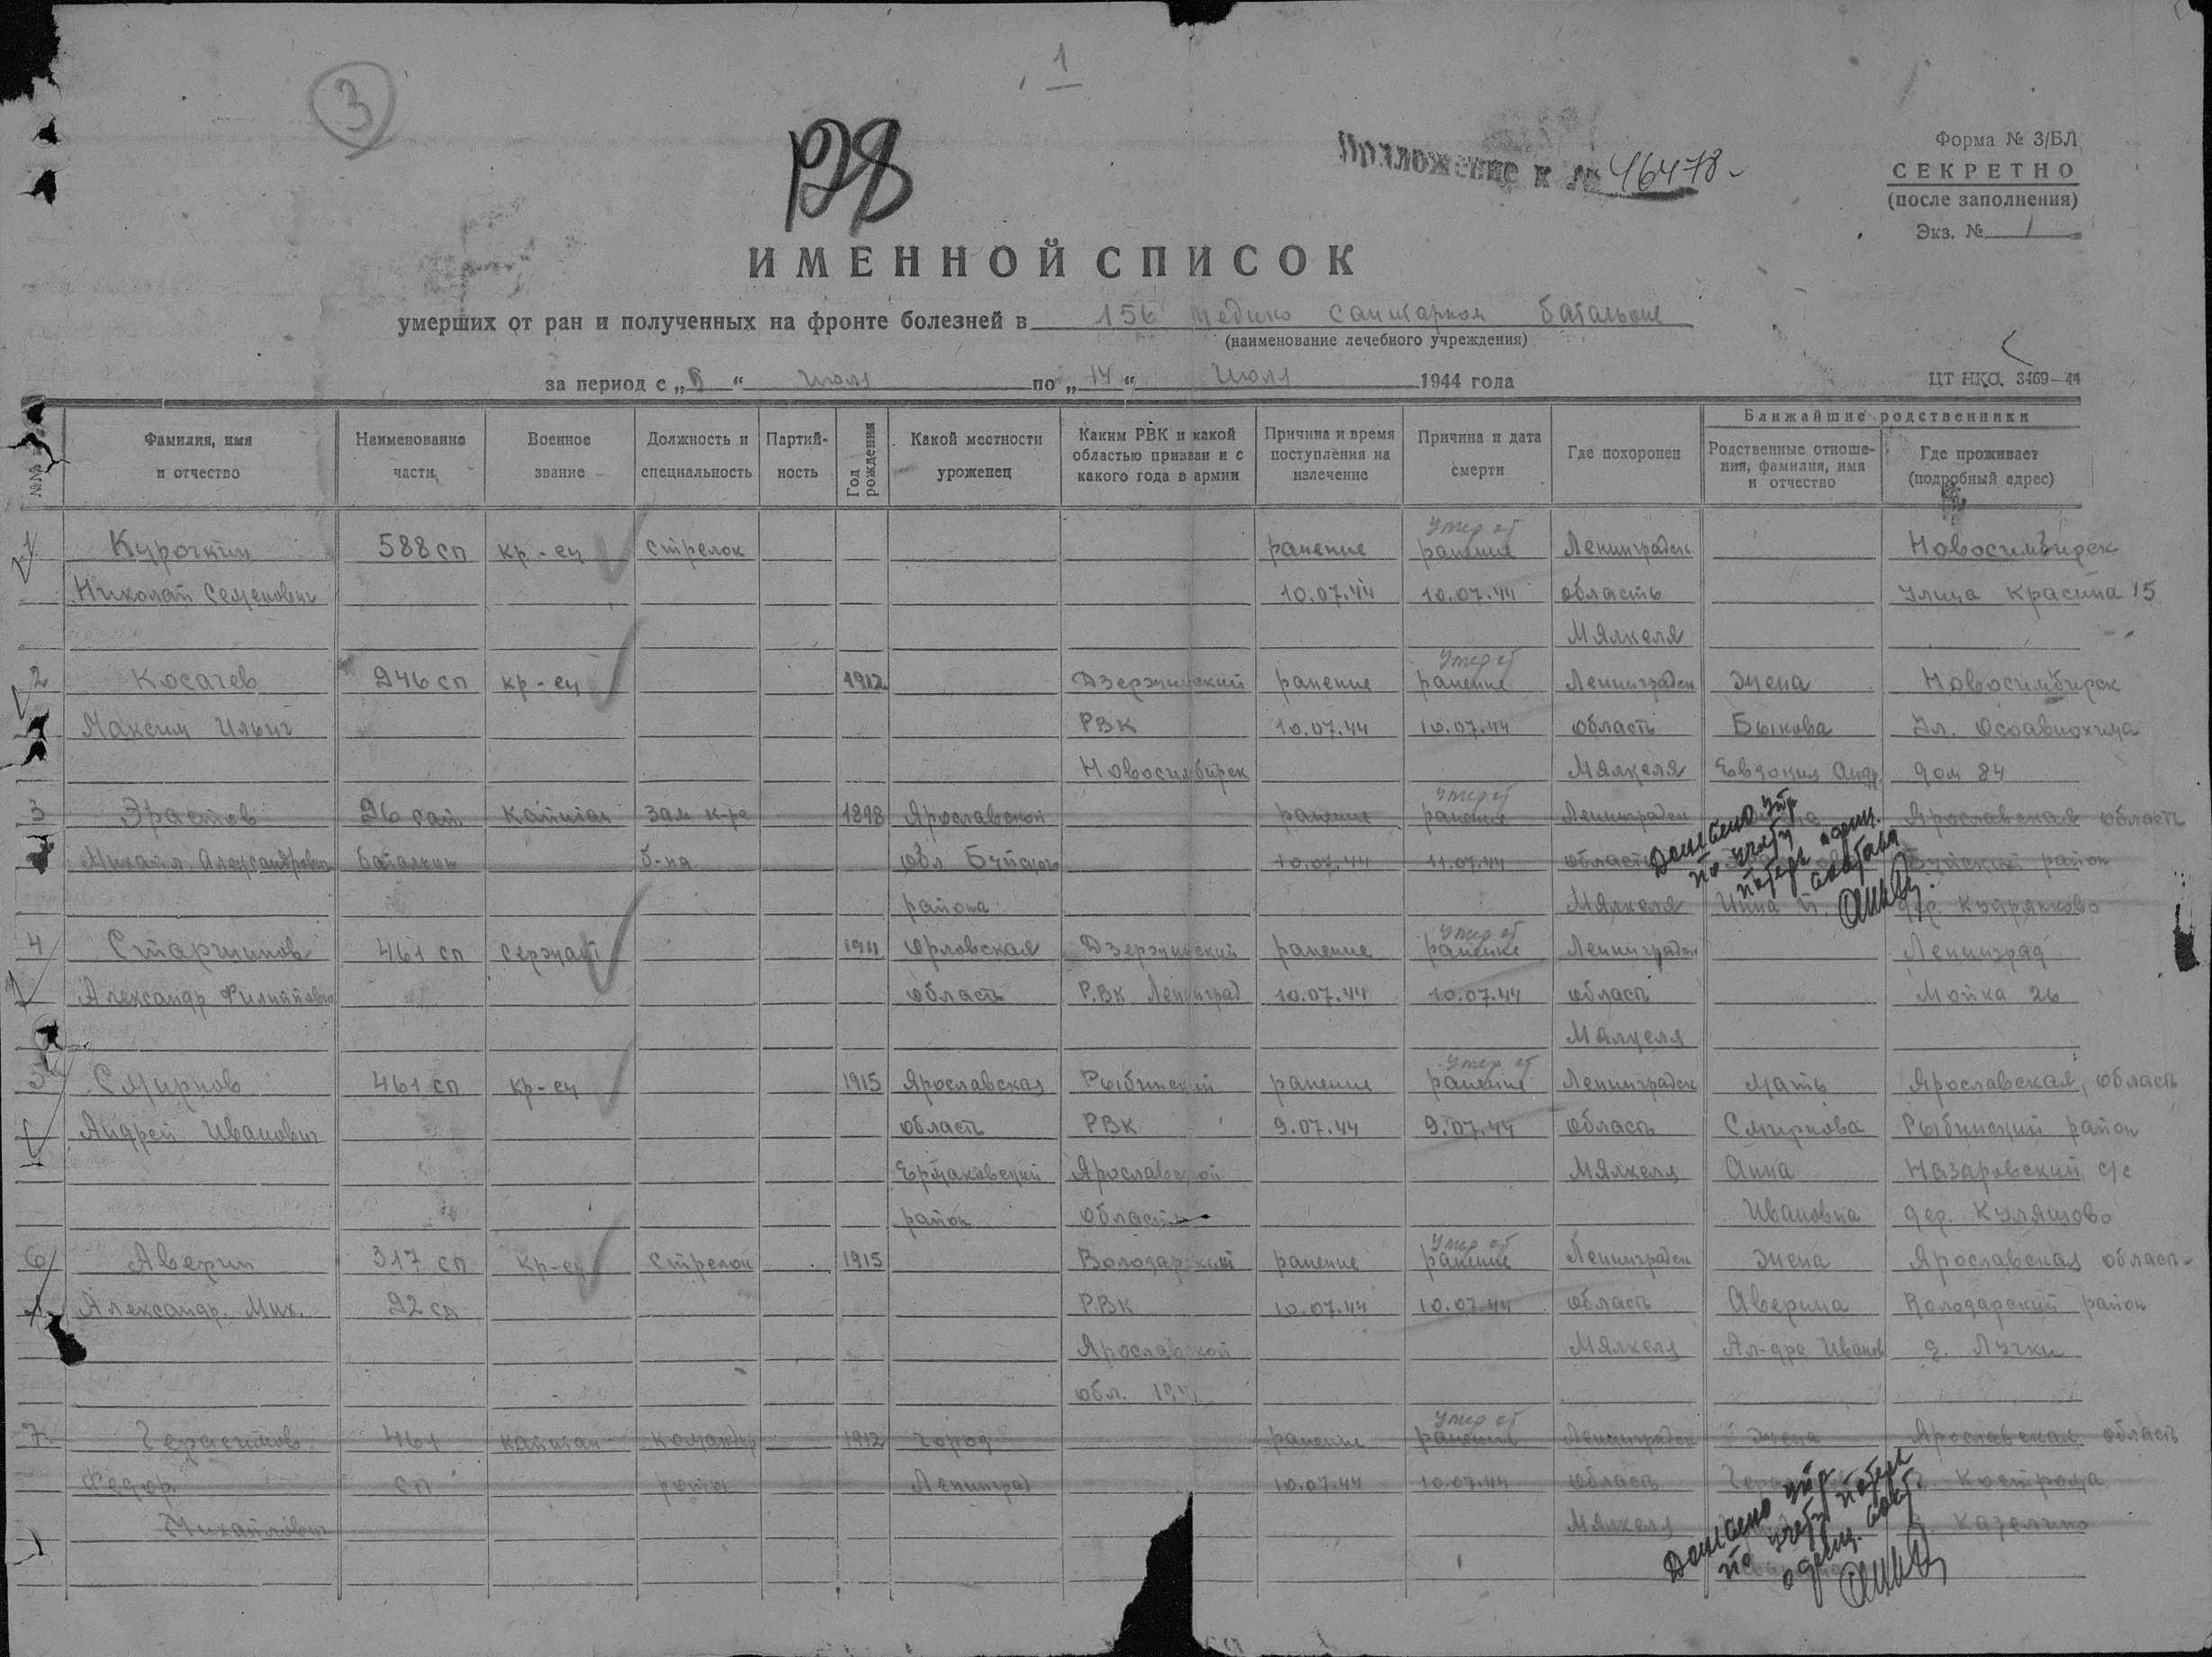 3
1
Приложение к № 46478
Форма № 3/БЛ
СЕКРЕТНО
(после заполнения)
Экз. № 1
ИМЕННОЙ СПИСОК
умерших от ран и полученных на фронте болезней в 156 медико санитарном батальоне
(наименование лечебного учреждения)
за период с „ “ июля по „14“ июля 1944 года
ЦТ НКО. 3469—44
№№ Фамилия, имя и отчество
Наименование части
Военное звание
Должность и специальность
Партийность
Год рождения
Какой местности уроженец
Каким РВК и какой областью призван и с какого года в армии
Причина и время поступления на излечение
Причина и дата смерти
Где похоронен
Ближайшие родственники
Родственные отношения, фамилия, имя и отчество
Где проживает (подробный адрес)
1 Курочкин 588 сп кр-ец стрелок ранение Умер от ранение Ленинградск Новосимбирск
Николай Семенович 10.07.44 10.07.44 область Улица Красина 15
Мялкеля
2 Косачев 946 сп кр-ец 1912 Дзержинский ранение Умер от ранение Ленинградск жена Новосимбирск
Максим Ильич РВК 10.07.44 10.07.44 область Быкова Ул. Осоавиохима
Новосимбирск Мялкеля Евдокия Андр. дом 84
3 Эрастов 96 сап. капитан зам к-ра 1898 Ярославской ранение Умер от ранение Ленинградск Ярославская область
Михаил Александрович батальон б-на обл Буйского 10.07.44 11.07.44 область Буйский район
района Мялкеля Нина дер.
Донесено упр по учету потерь офиц. состава
4 Старшинов 461 сп сержант 1911 Орловская Дзержинский ранение Умер от ранение Ленинградск Ленинград
Александр Филиппович область РВК Ленинград 10.07.44 10.07.44 область Мойка 26
Мялкеля
5 Смирнов 461 сп кр-ец 1915 Ярославская Рыбинский ранение Умер от ранение Ленинградск мать Ярославская область
Андрей Иванович область РВК 9.07.44 9.07.44 область Смирнова Рыбинский район
Ермаковский Ярославской Мялкеля Анна Назаровский с/с
район области Ивановна дер. Куляшово
6 Аверин 317 сп кр-ец стрелок 1915 Володарский ранение Умер от ранение Ленинградск жена Ярославская област
Александр. Мих. 92 сд РВК 10.07.44 10.07.44 область Аверина Володарский район
Ярославской Мялкеля Ал-дра Иванов д. Лучки
обл.
7 Герасимов 461 капитан командир 1912 город ранение Умер от ранение Ленинградск жена Ярославская область
Федор сп роты Ленинград 10.07.44 10.07.44 область Кострома
Михайлович Мялкеля
Донесено упр по учету потерь офиц. сост.